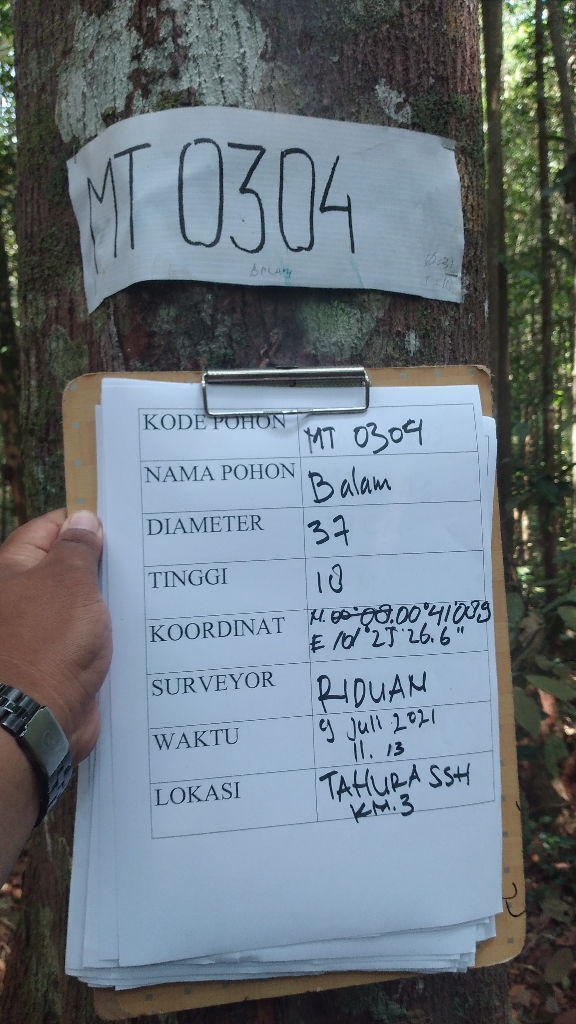 MT 0304
BALAM
KODE POHON MT 0304
NAMA POHON Balam
DIAMETER 37
TINGGI 18
KOORDINAT N. 00°41'089
E 101°25'26.6"
SURVEYOR RIDUAN
WAKTU 9 Juli 2021
11. 13
LOKASI TAHURA SSH
KM.3